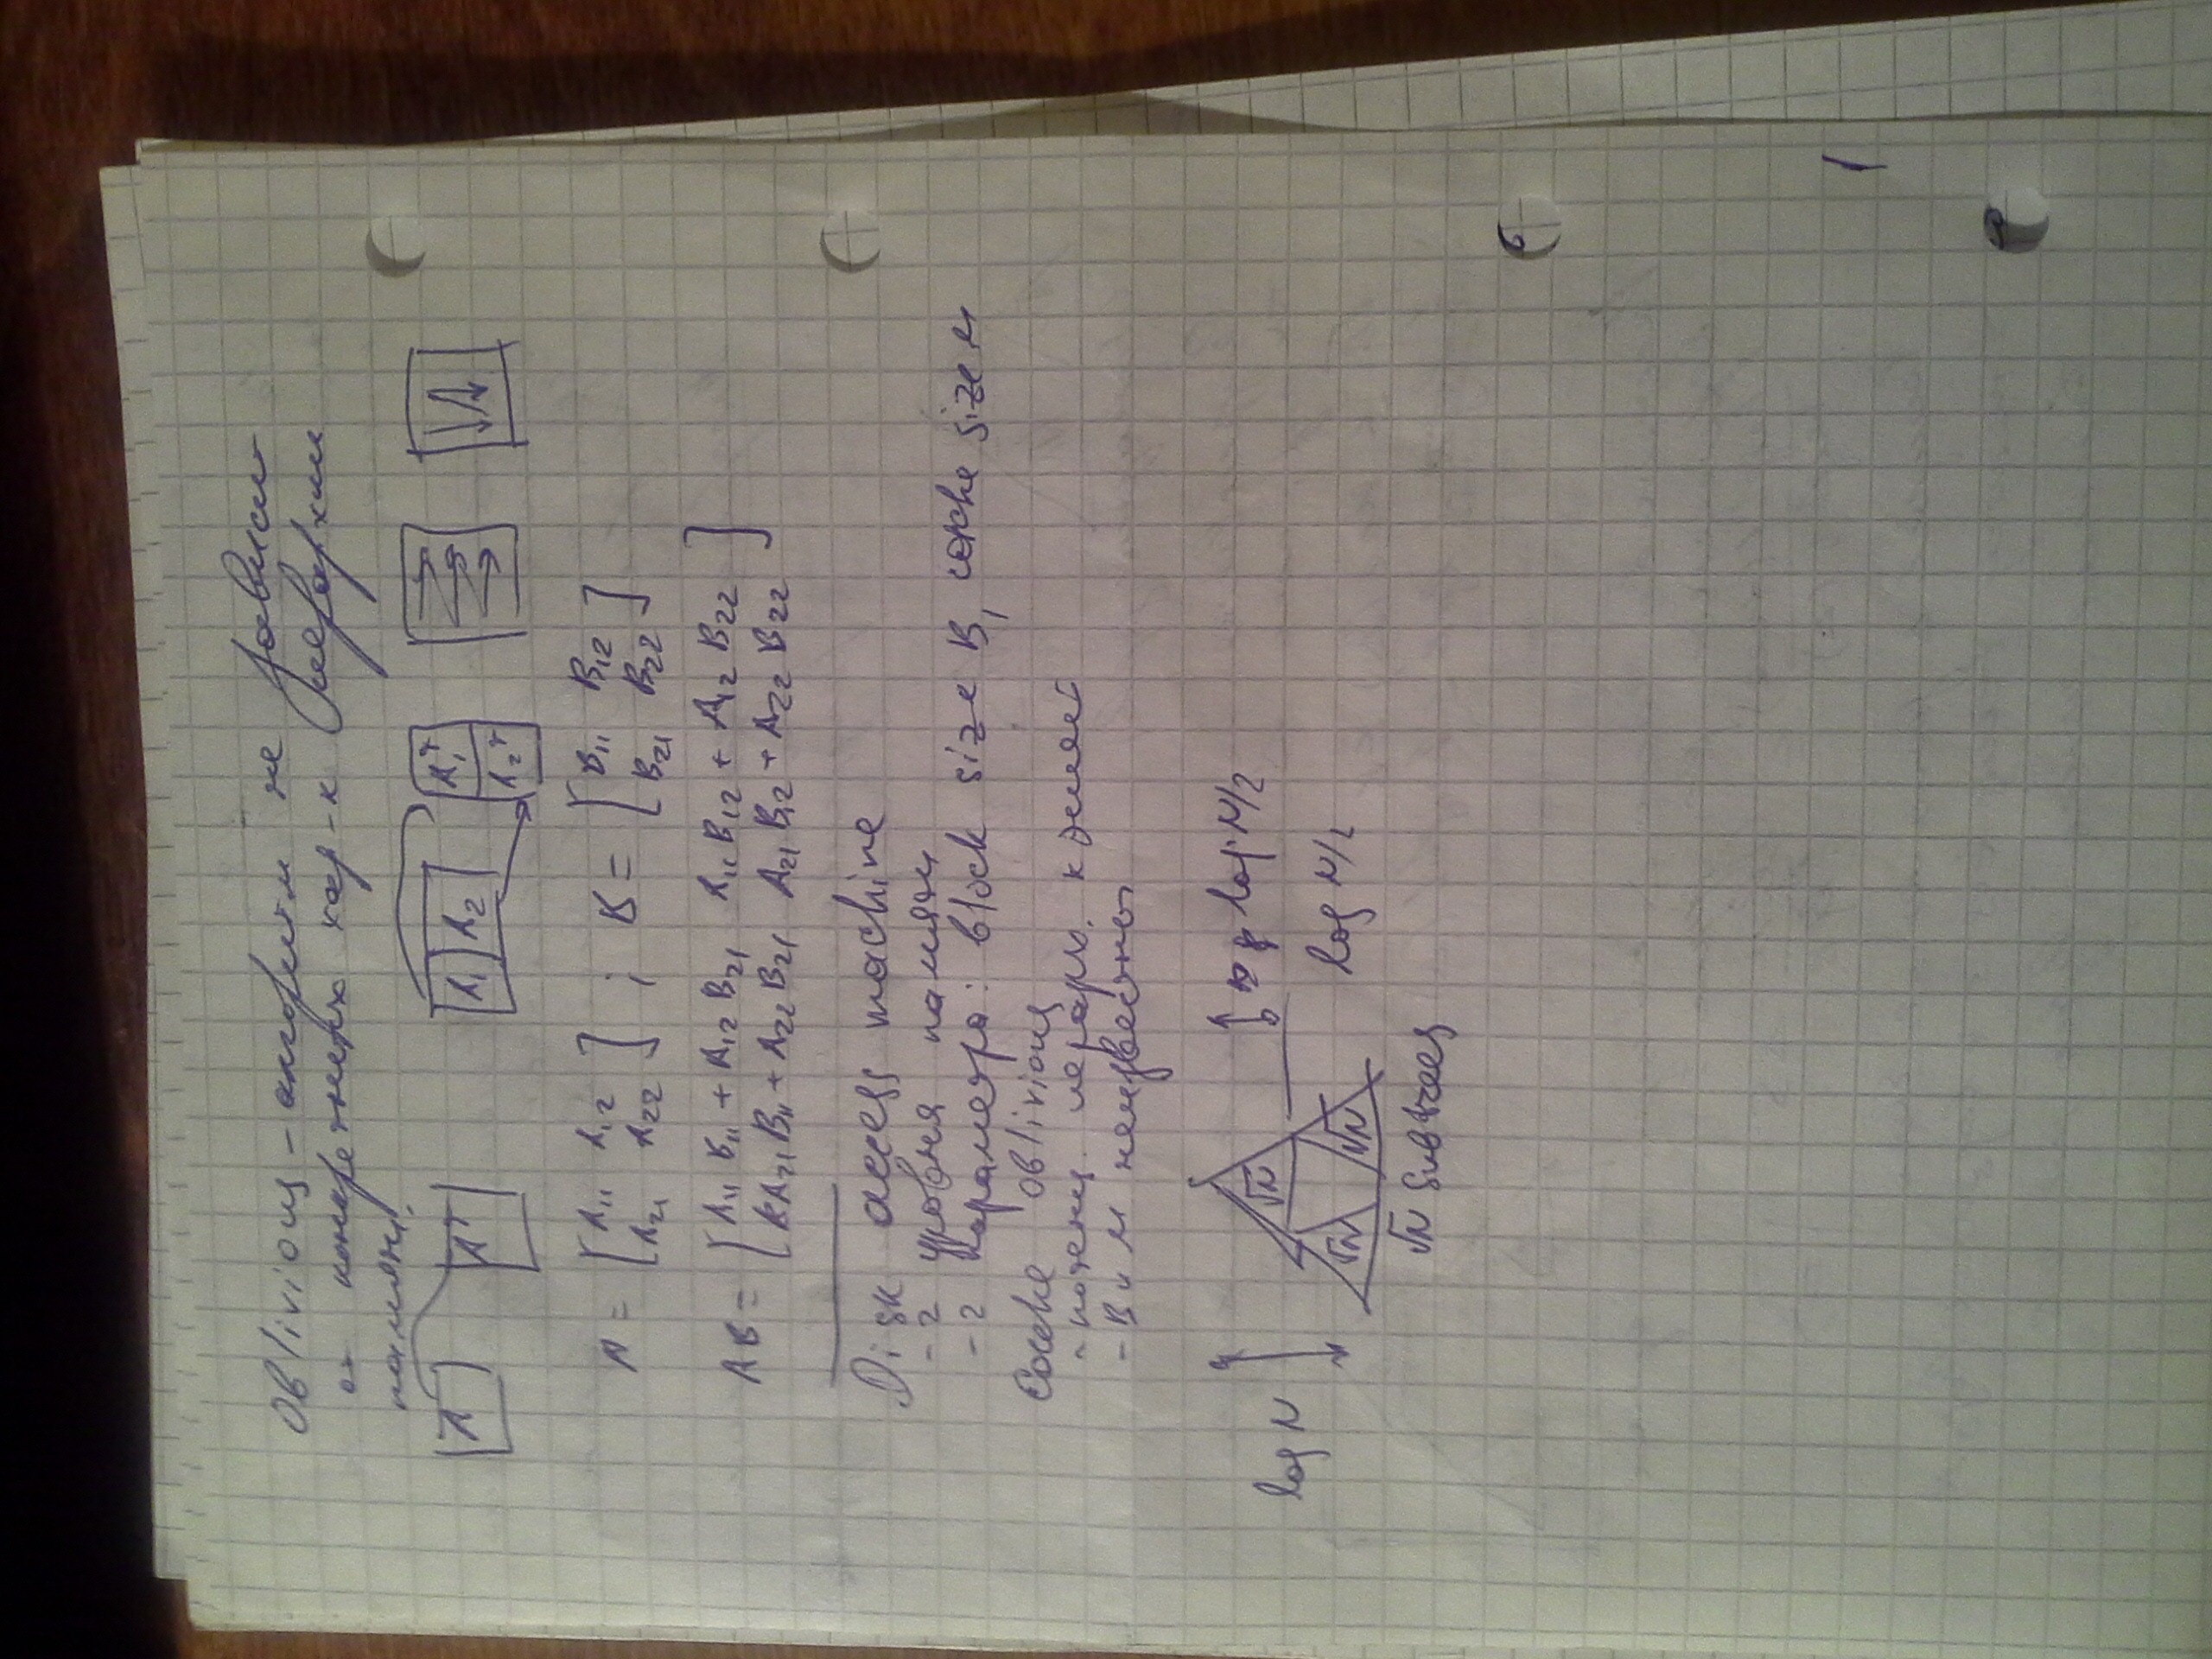 Oblivious – алгоритм не зависит
от конкретных хар-к иерархии
памяти.
A Aᵀ A₁ A₂ A₁ᵀ A₂ᵀ
A = [ A₁₁ A₁₂ ; B = [ B₁₁ B₁₂
A₂₁ A₂₂ ] B₂₁ B₂₂ ]
AB = [ A₁₁B₁₁ + A₁₂B₂₁ A₁₁B₁₂ + A₁₂B₂₂ ]
A₂₁B₁₁ + A₂₂B₂₁ A₂₁B₁₂ + A₂₂B₂₂
Disk access machine
- 2 уровня памяти
- 2 параметра: block size B, cache size M
Cache oblivious
- иерарх. к
- B и M неизвестны
log N √N log N/2
√N √N log N/2
√N subtrees